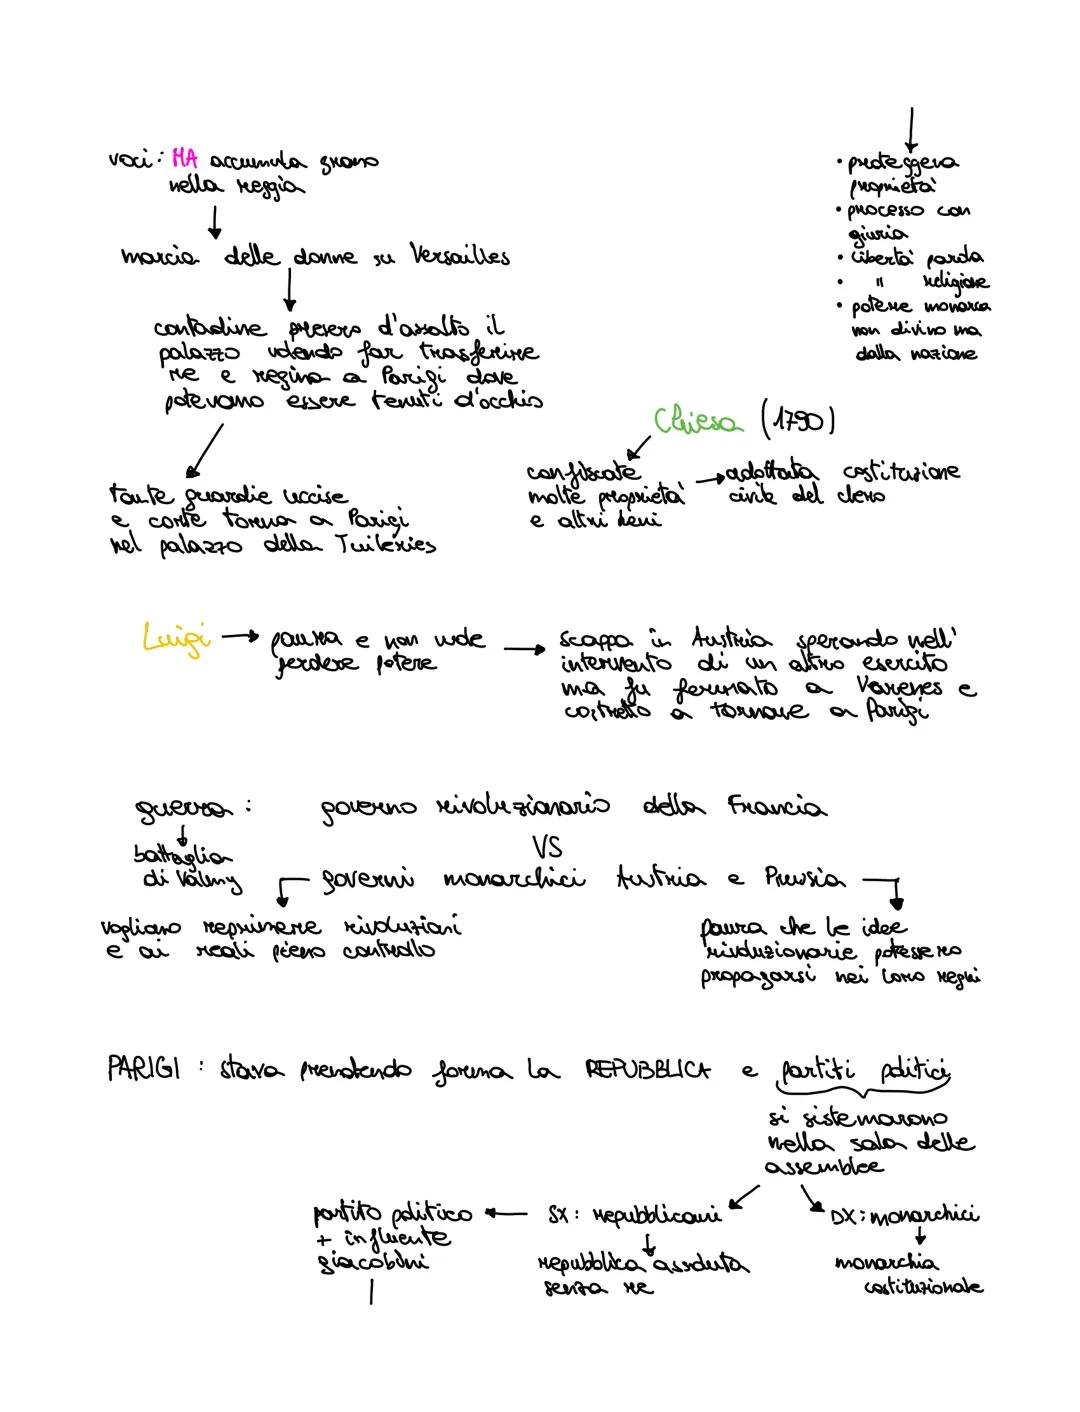 voci: MA accumula grano
nella reggia
marcia delle donne su Versailles
contadine presero d'assalto il
palazzo volendo far trasferire
re e regina a Parigi dove
potevano essere tenuti d'occhio
tante guardie uccise
e corte torna a Parigi
nel palazzo della Tuileries
• proteggeva
proprietà
• processo con
giuria
• libertà parola
• " religiose
• potere monarca
non divino ma
dalla nazione
Chiesa (1790)
confiscate
molte proprietà
e altri beni
adottata costituzione
civile del clero
Luigi
paura e non vuole
perdere potere
scappa in Austria sperando nell'
intervento di un altro esercito
ma fu fermato a Varenes e
costretto a tornare a Parigi
guerra: governo rivoluzionario della Francia
battaglia
di Valmy
VS
governi monarchici Austria e Prussia
vogliano reprimere rivoluzioni
e ai reali pieno controllo
paura che le idee
rivoluzionarie potessero
propagarsi nei loro regni
PARIGI: stava prendendo forma la REPUBBLICA e partiti politici
si sistemarono
nella sala delle
assemblee
partito politico
+ influente
giacobini
SX: repubblicani
repubblica assoluta
senza re
DX: monarchici
monarchia
costituzionale